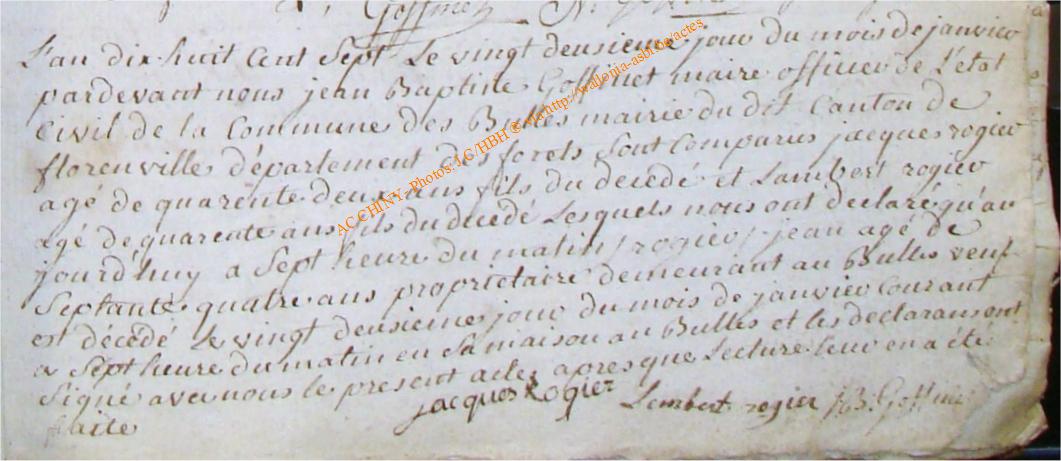 Goffinet
L'an dix huit cent Sept Le vingt deusieme jour du mois de janvier
pardevant nous jean Baptiste Goffinet maire officier de L'état
Civil de la Commune des Bulles mairie du dit Canton de
florenville département des forets Sont Comparus jacques rogier
agé de quarente deux ans fils du décedé et Lambert rogier
agé de quarente ans fils du décedé Lesquels nous ont déclaré qu'au
jourd'huy a Sept heure du matin / rogier / jean agé de
Septante quatre ans propriétaire demeurant au Bulles veuf
est décédé Le vingt deusieme jour du mois de janvier Courant
a Sept heure du matin en Sa maison au Bulles et les déclarans ont
Signé avec nous le present acte, apres que Lecture leur en a été
faite
jacques Rogier Lembert rogier JB. Goffinet
AC CHINY - Photos: J.C/HBH http://wallonia-asbl.be/actes